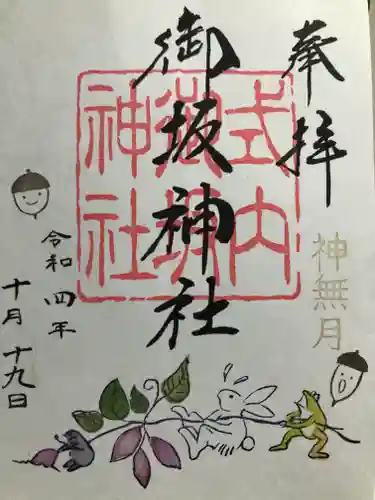 奉拝
神無月
御坂神社
式内
御坂
神社
令和四年
十月十九日